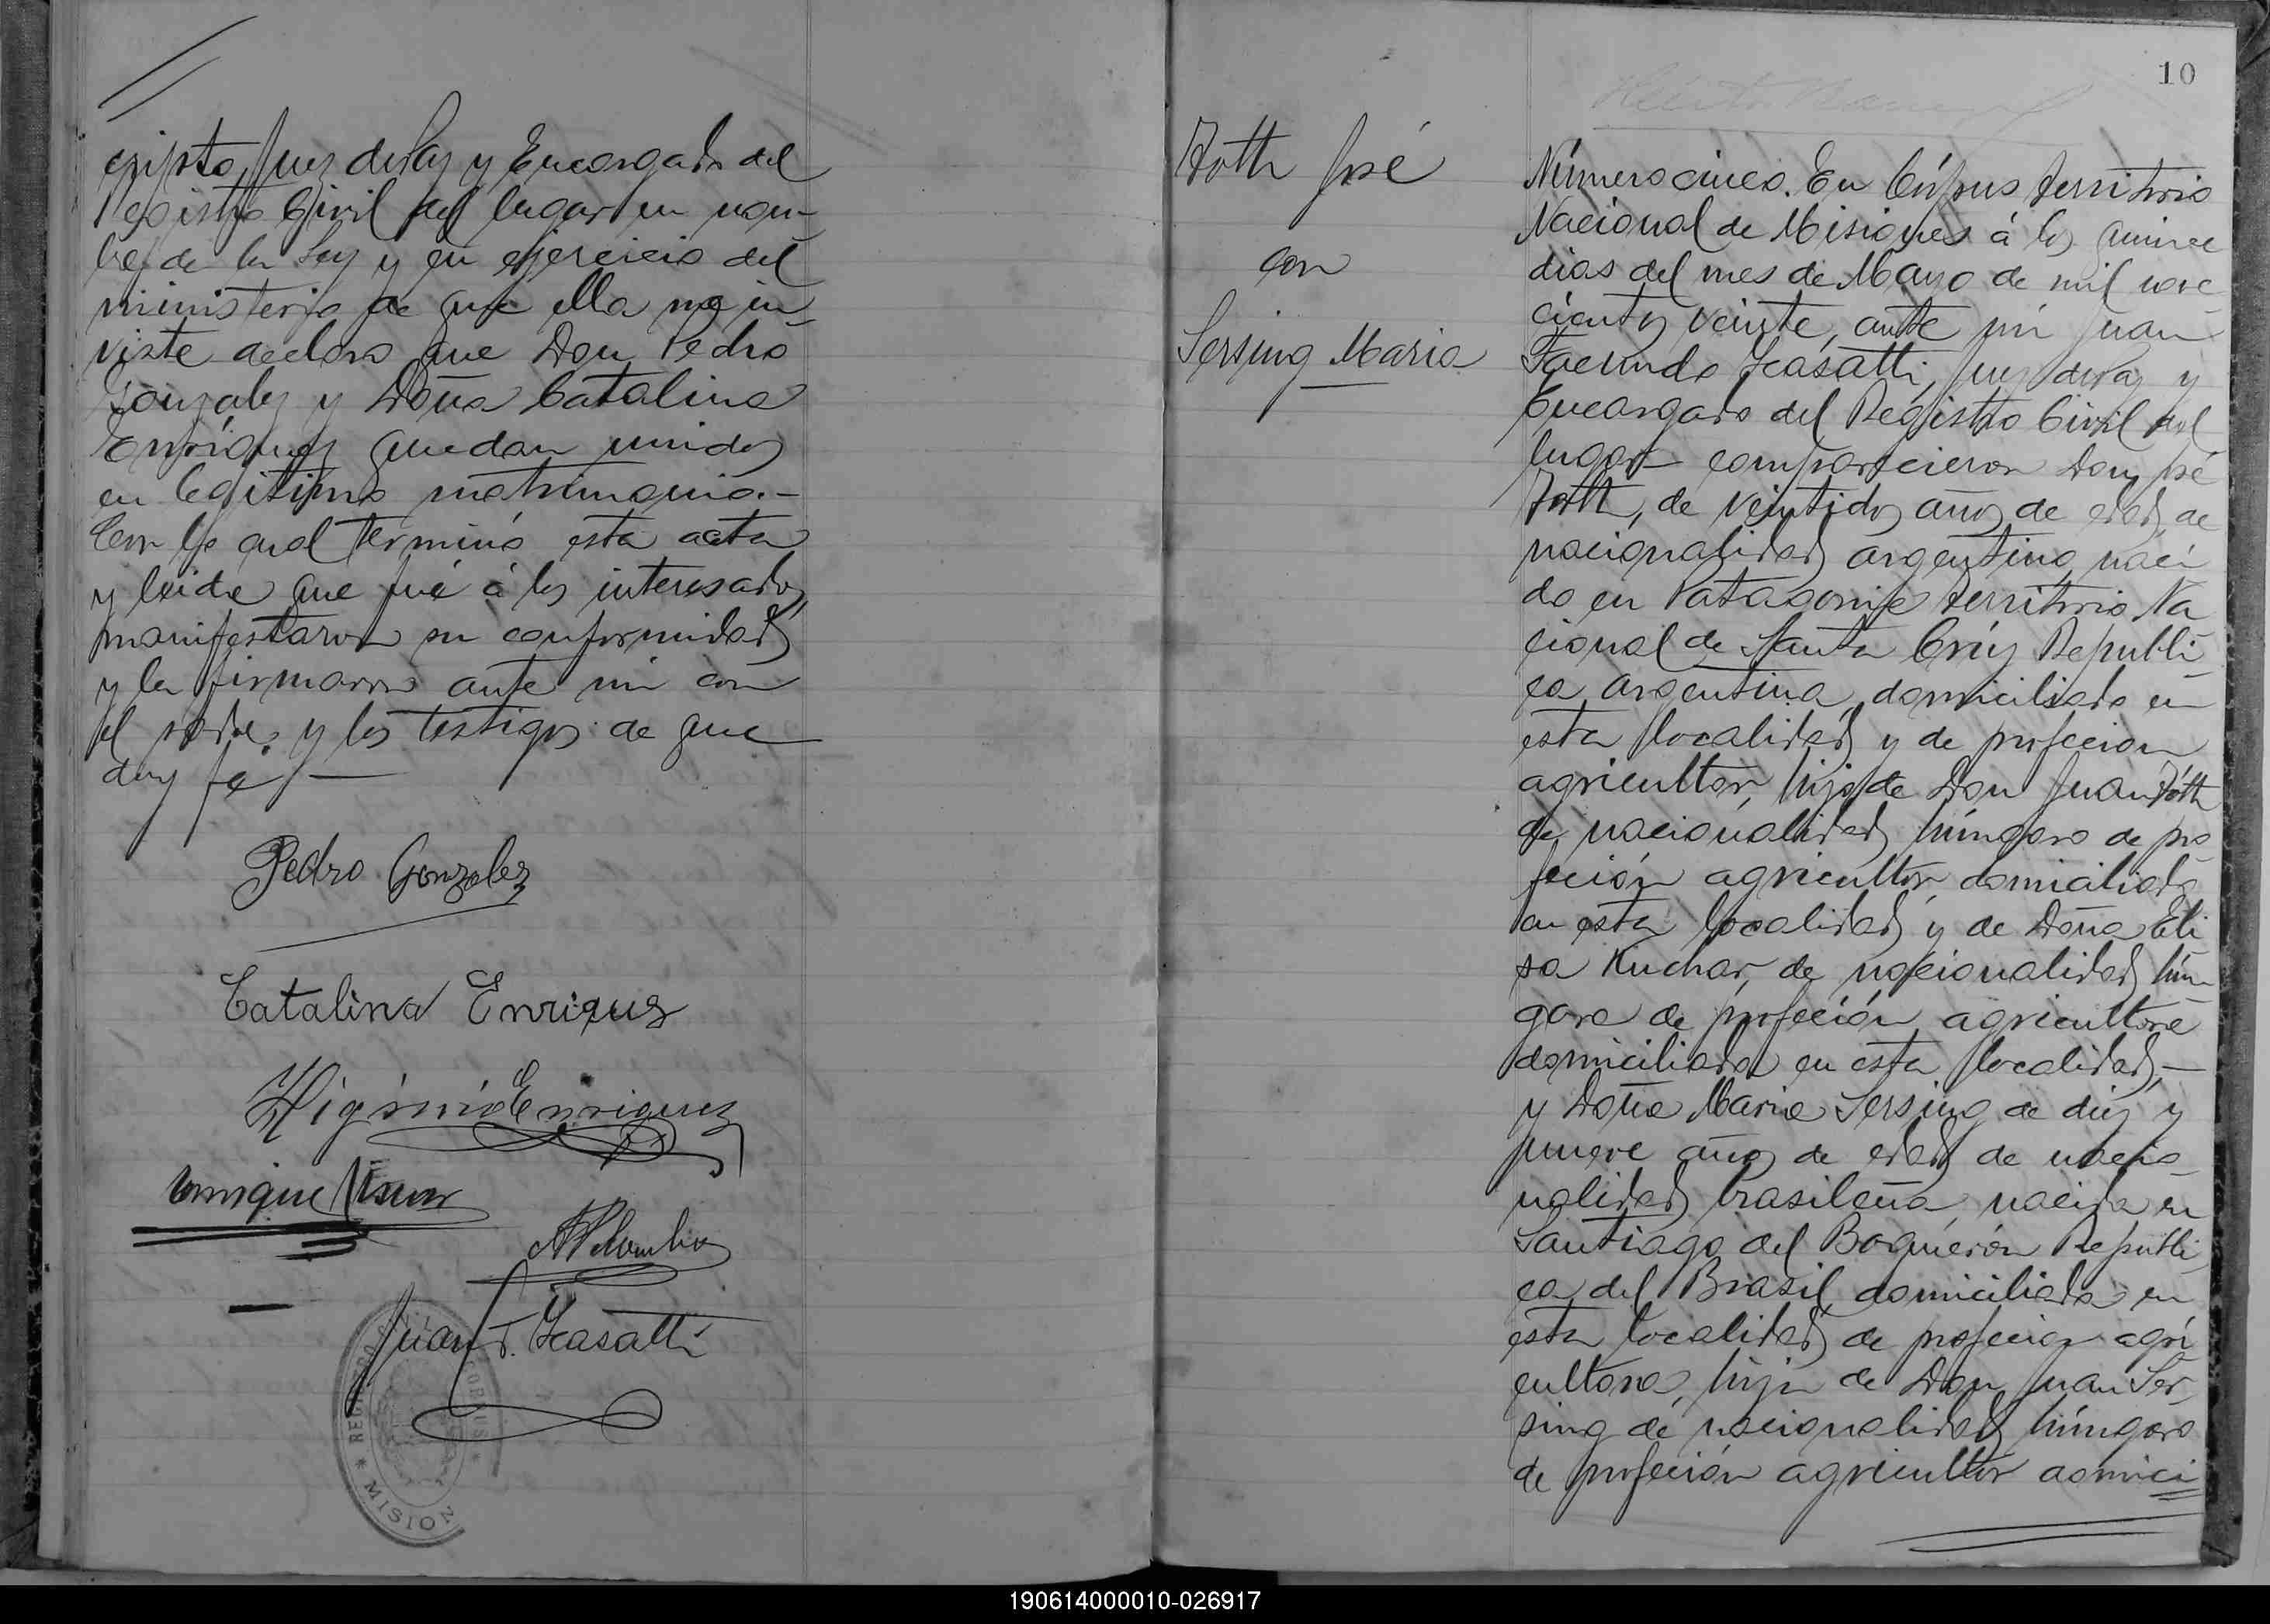 cripto, Juez de Paz y Encargado del
Registro Civil del lugar en nom-
bre de la Ley y en ejercicio del
ministerio de que ella me in-
viste declaro que Don Pedro
Gonzalez y Doña Catalina
Enriquez quedan unidos
en legitimo matrimonio.-
Con lo cual terminó esta acta
y leida que fué á los interesados,
manifestaron su conformidad
y la firmaron ante mi con
el padre y los testigos de que
doy fé.—
Pedro Gonzalez
Catalina Enriquez
Higinio Enriquez
Enrique
Juan F. Scasatti
REGISTRO CIVIL CORPUS * MISION
10
Toth José
con
Sersing Maria
Número cinco. En Córpus territorio
Nacional de Misiones á los quince
dias del mes de Mayo de mil nove
cientos veinte, ante mi Juan
Facundo Scasatti, Juez de Paz y
Encargado del Registro Civil del
lugar comparecieron Don José
Toth, de veintidos años de edad, de
nacionalidad argentino, naci
do en Patagonia territorio Na
cional de Santa Crúz Republi
ca Argentina, domiciliado en
esta localidad y de profecion
agricultor, hijo de Don Juan Tóth
de nacionalidad húngaro de pro
feción agricultor, domiciliado
en esta localidad y de Doña Eli
sa Kuchar, de nacionalidad hún
gara de profeción agricultora
domiciliada en esta localidad,—
y Doña Maria Sersing de diez y
nueve años de edad de nacio-
nalidad brasileña, nacida en
Santiago del Boquerón Republi
ca del Brasil domiciliada en
esta localidad de profecion agri
cultora, hija de Don Juan Ser
sing de nacionalidad húngaro
de profeción agricultor domici
190614000010-026917